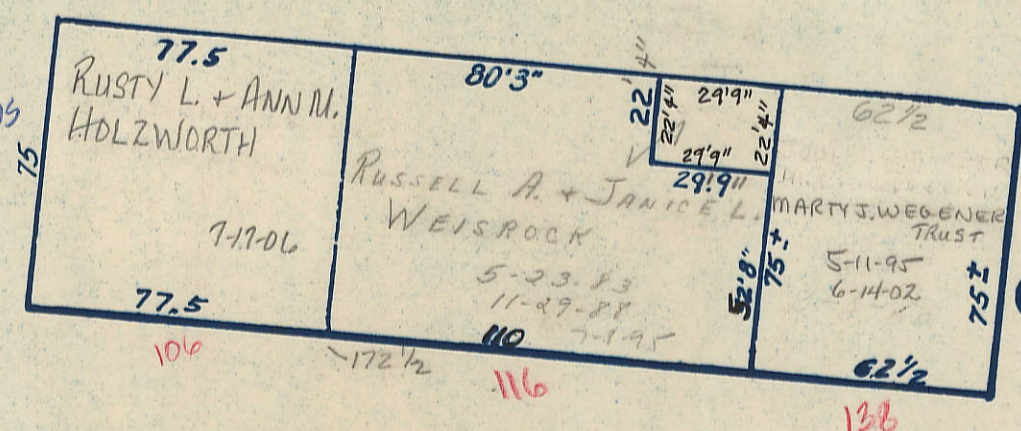 77.5
RUSTY L. + ANN M.
HOLZWORTH
75
7-17-06
77.5
106
80'3"
22'4"
22'4"
29'9"
29'9"
22'4"
29'9"
RUSSELL A. + JANICE L.
WEISROCK
5-23-83
11-29-88
7-1-95
52'8"
110
172 1/2
116
62 1/2
MARTY J. WEGENER
TRUST
5-11-95
6-14-02
75±
75±
62 1/2
138